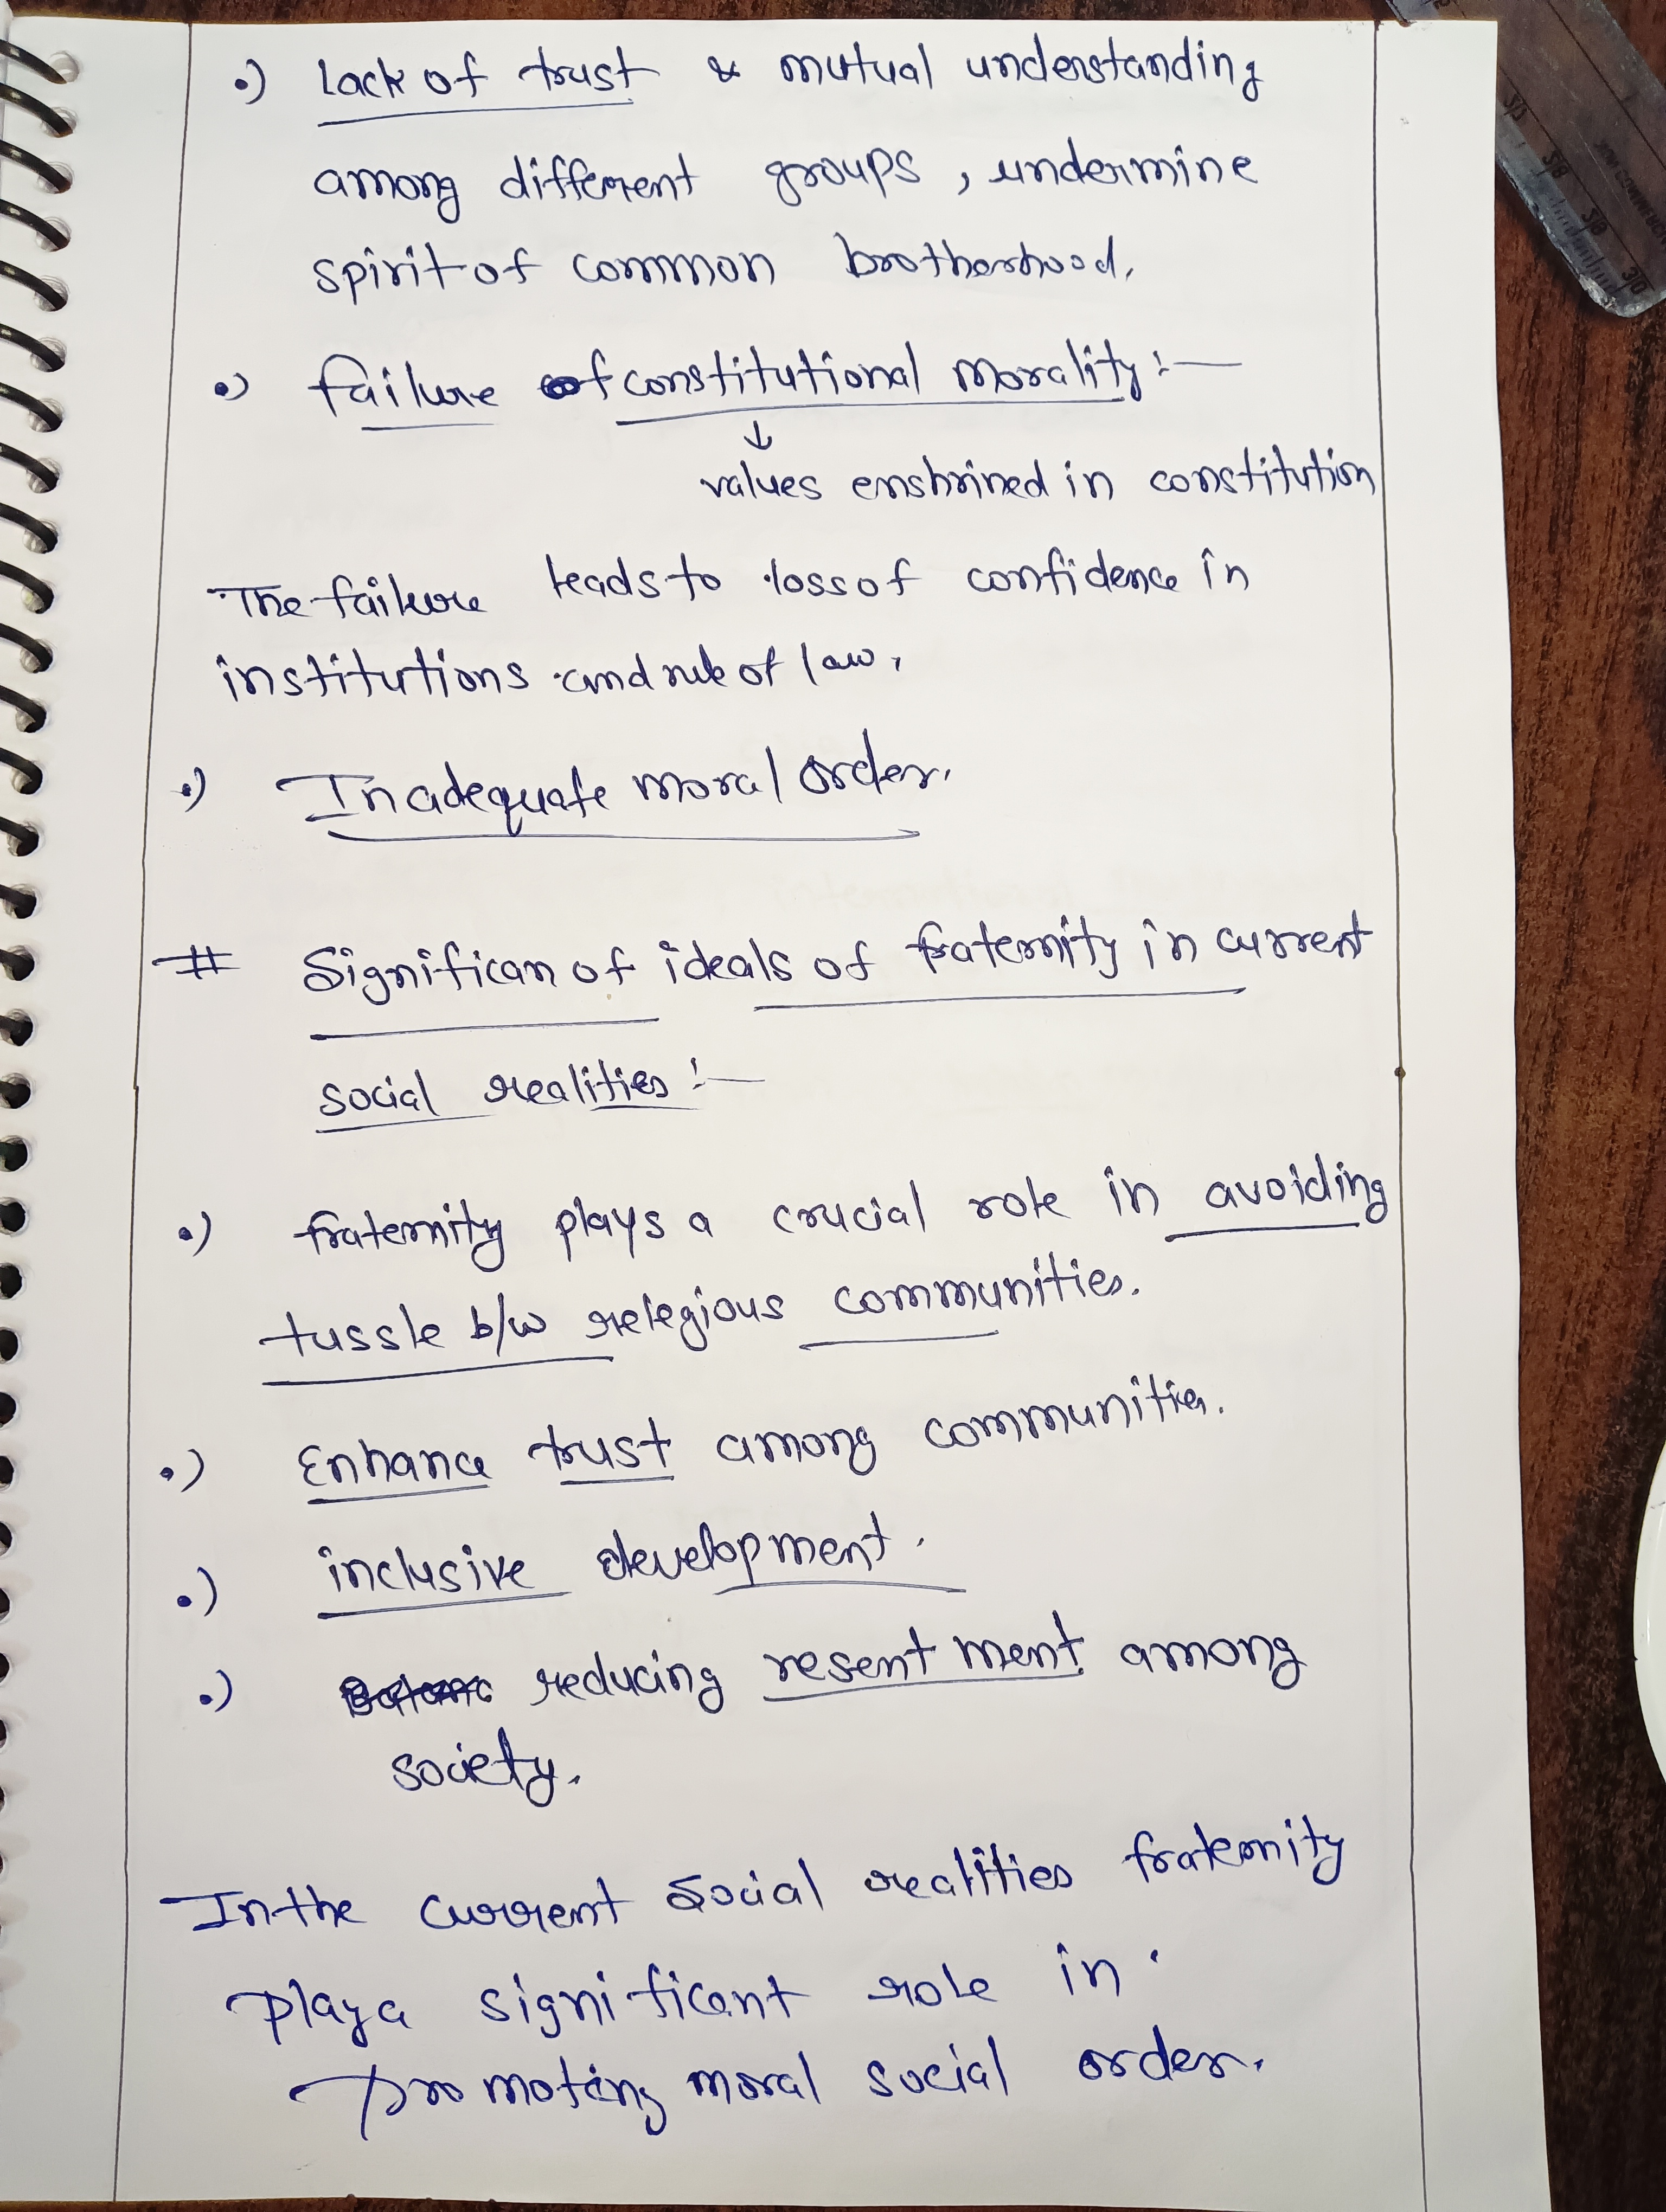 •) Lack of trust & mutual understanding
among different groups, undermine
spirit of common brotherhood.
•) failure of constitutional morality :—
↓
values enshrined in constitution
The failure leads to loss of confidence in
institutions and rule of law.
•) Inadequate moral order.
# Significan of ideals of fraternity in current
social realities :—
•) fraternity plays a crucial role in avoiding
tussle b/w relegious communities.
•) Enhance trust among communities.
•) inclusive development.
•) reducing resentment among
society.
In the current social realities fraternity
play a significant role in
promoting moral social order.